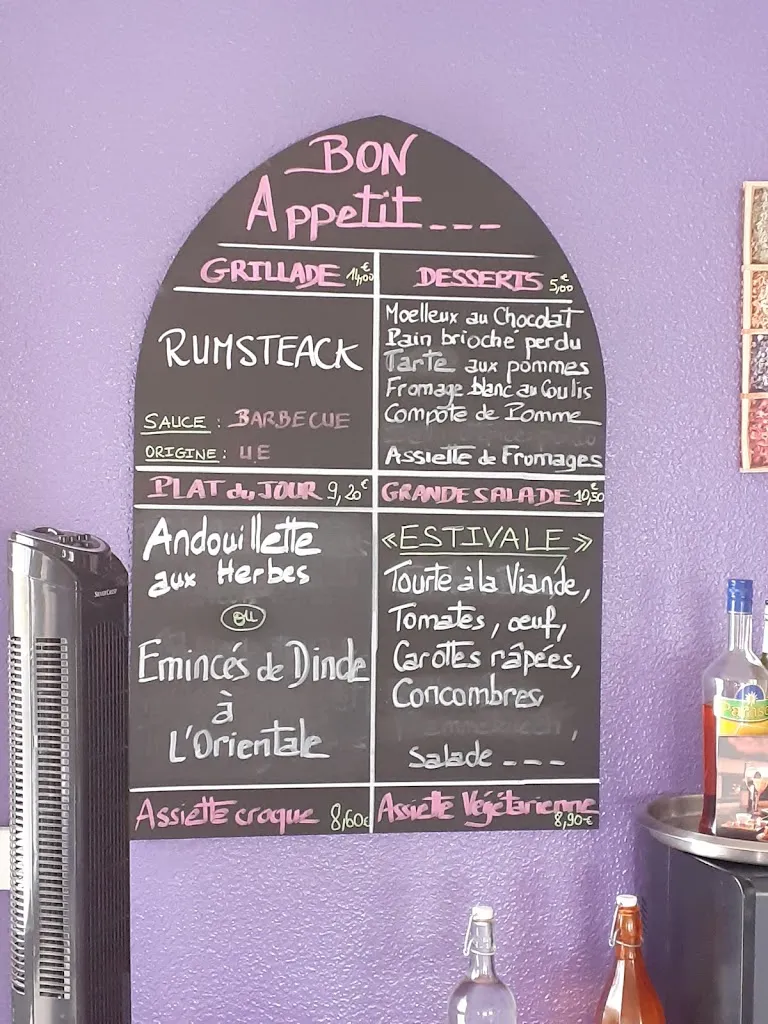 BON
Appetit...
GRILLADE 14,00€
RUMSTEACK
SAUCE : BARBECUE
ORIGINE : UE
DESSERTS 5,00€
Moelleux au Chocolat
Pain brioché perdu
Tarte aux pommes
Fromage blanc au Coulis
Compote de Pomme
Assiette de Fromages
PLAT du JOUR 9,20€
Andouillette
aux Herbes
ou
Emincés de Dinde
à
L'Orientale
GRANDE SALADE 10,50€
«ESTIVALE»
Tourte à la Viande,
Tomates, œuf,
Carottes râpées,
Concombres,
Salade ---
Assiette croque 8,60€
Assiette Végétarienne
8,90€
SILVERCREST